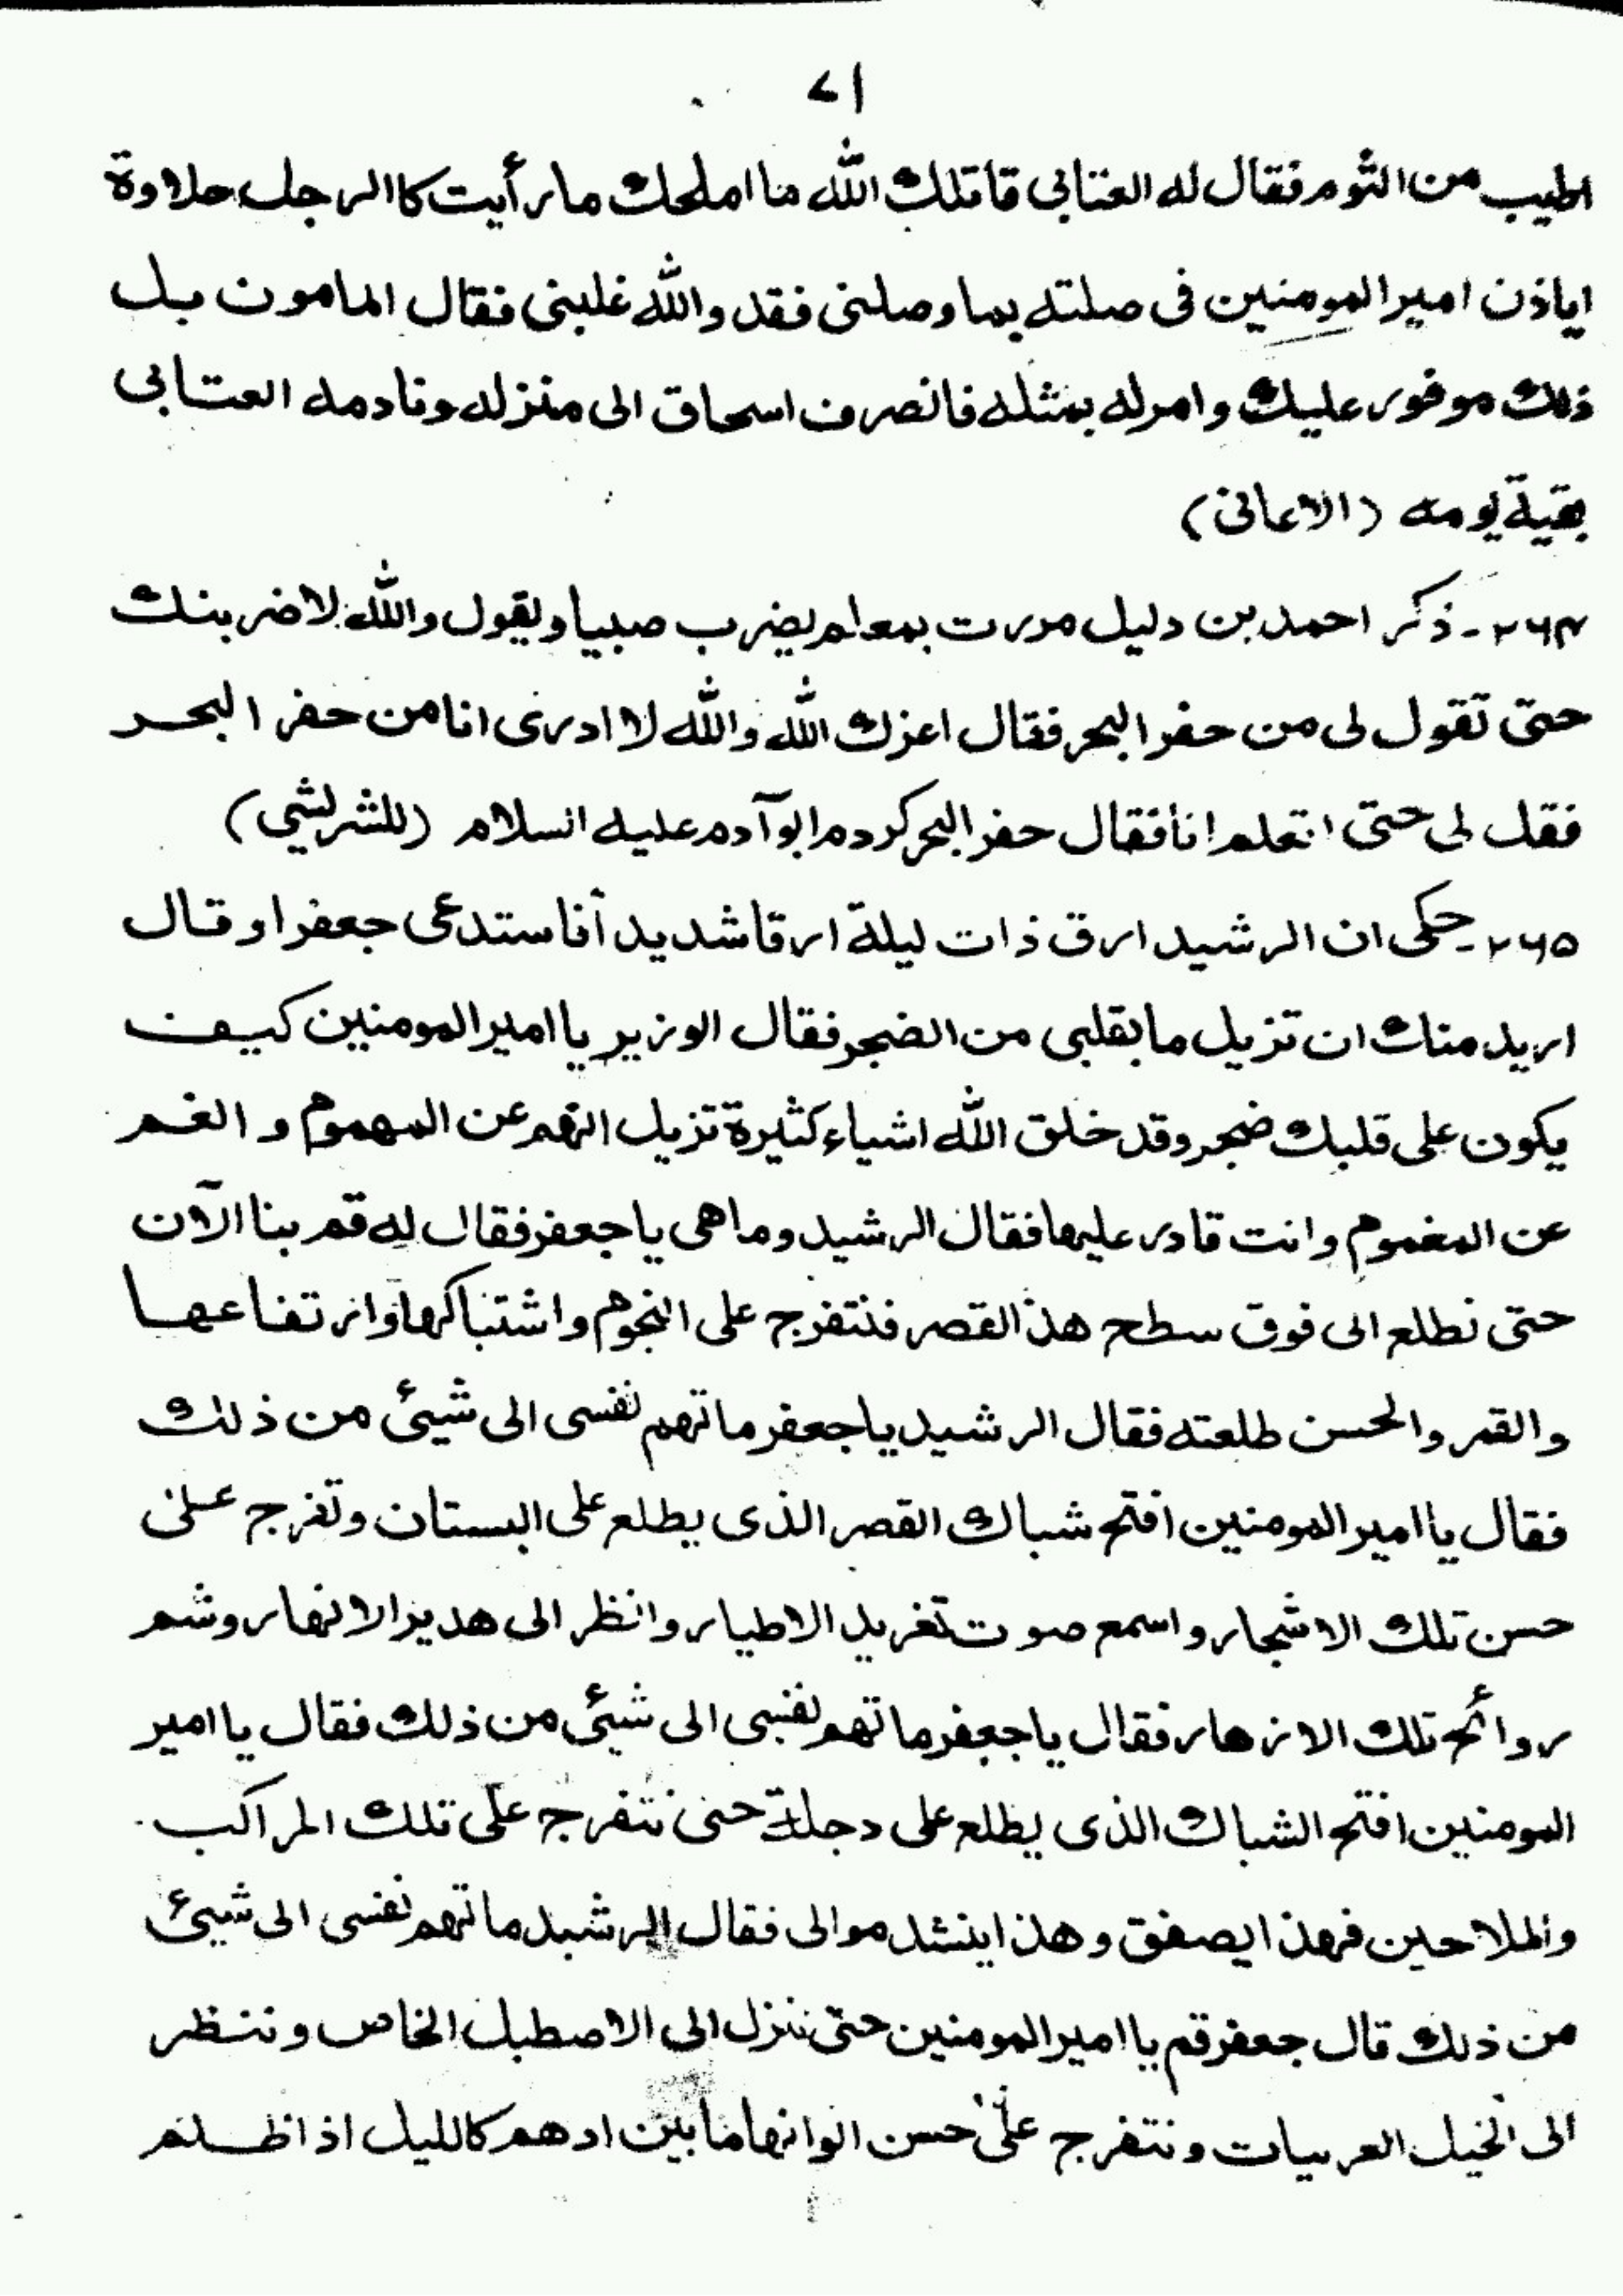 ۷۱
اطیب من الثوم فقال له العتابی قاتلك اللّٰه ما املحك ما رأیت کاالرجل حلاوة
ایاذن امیر المومنین فی صلته بما وصلنی فقد واللّٰه غلبنی فقال المامون بل
ذلك موفور علیك وامر له بمثله فانصرف اسحاق الی منزله ونادمه العتابی
بقیة یومه (الاغانی)
۲۶۴۔ ذکر احمد بن دلیل مررت بمعلم یضرب صبیا ویقول واللّٰه لاضربنك
حتی تقول لی من حفر البحر فقال اعزك اللّٰه واللّٰه لا ادری انا من حفر البحر
فقل لی حتی اتعلم انا فقال حفر البحر کردم ابو آدم علیه السلام (للشریشی)
۲۶۵۔ حکی ان الرشید ارق ذات لیلة ارقا شدید آفاستدعی جعفرا وقال
ارید منك ان تزیل ما بقلبی من الضجر فقال الوزیر یا امیر المومنین کیف
یکون علی قلبك ضجر وقد خلق اللّٰه اشیاء کثیرة تزیل الهم عن المهموم و الغم
عن المغموم وانت قادر علیها فقال الرشید وما هی یا جعفر فقال له قم بنا الآن
حتی نطلع الی فوق سطح هذ القصر فنتفرج علی النجوم واشتباکها وارتفاعها
والقمر والحسن طلعته فقال الرشید یا جعفر ما تهم نفسی الی شیئ من ذلك
فقال یا امیر المومنین افتح شباك القصر الذی یطلع علی البستان وتفرج علی
حسن تلك الاشجار واسمع صوت تغرید الاطیار وانظر الی هدیر الانهار وشم
روائح تلك الازهار فقال یا جعفر ما تهم نفسی الی شیئ من ذلك فقال یا امیر
المومنین افتح الشباك الذی یطلع علی دجلة حتی نتفرج علی تلك المراکب
والملاحین فهذا یصفق وهذا ینشد موالی فقال الرشید ما تهم نفسی الی شیئ
من ذلك قال جعفر قم یا امیر المومنین حتی ننزل الی الاصطبل الخاص وننظر
الی الخیل العربیات ونتفرج علی حسن الوانها ما بین ادهم کاللیل اذ اظلم